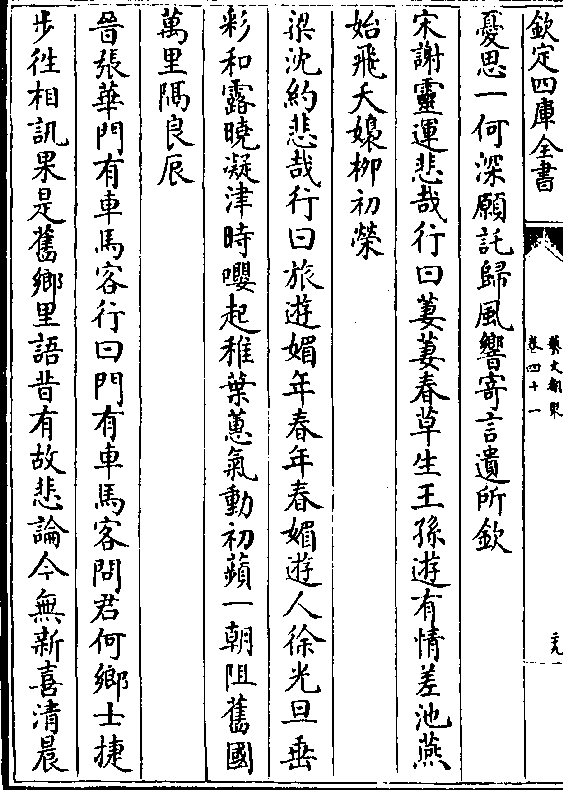 欽定四庫全書
藝文類聚
卷四十一
憂思一何深願託歸風響寄言遺所欽
宋謝靈運悲哉行曰萋萋春草生王孫遊有情差池燕
始飛夭嬝桞初榮
梁沈約悲哉行曰旅遊媚年春年春媚遊人徐光旦垂
彩和露曉凝津時嚶起稚葉蕙氣動初蘋一朝阻舊國
萬里隔良辰
晉張華門有車馬客行曰門有車馬客問君何鄉士捷
步徃相訊果是舊鄉里語昔有故悲論今無新喜清晨